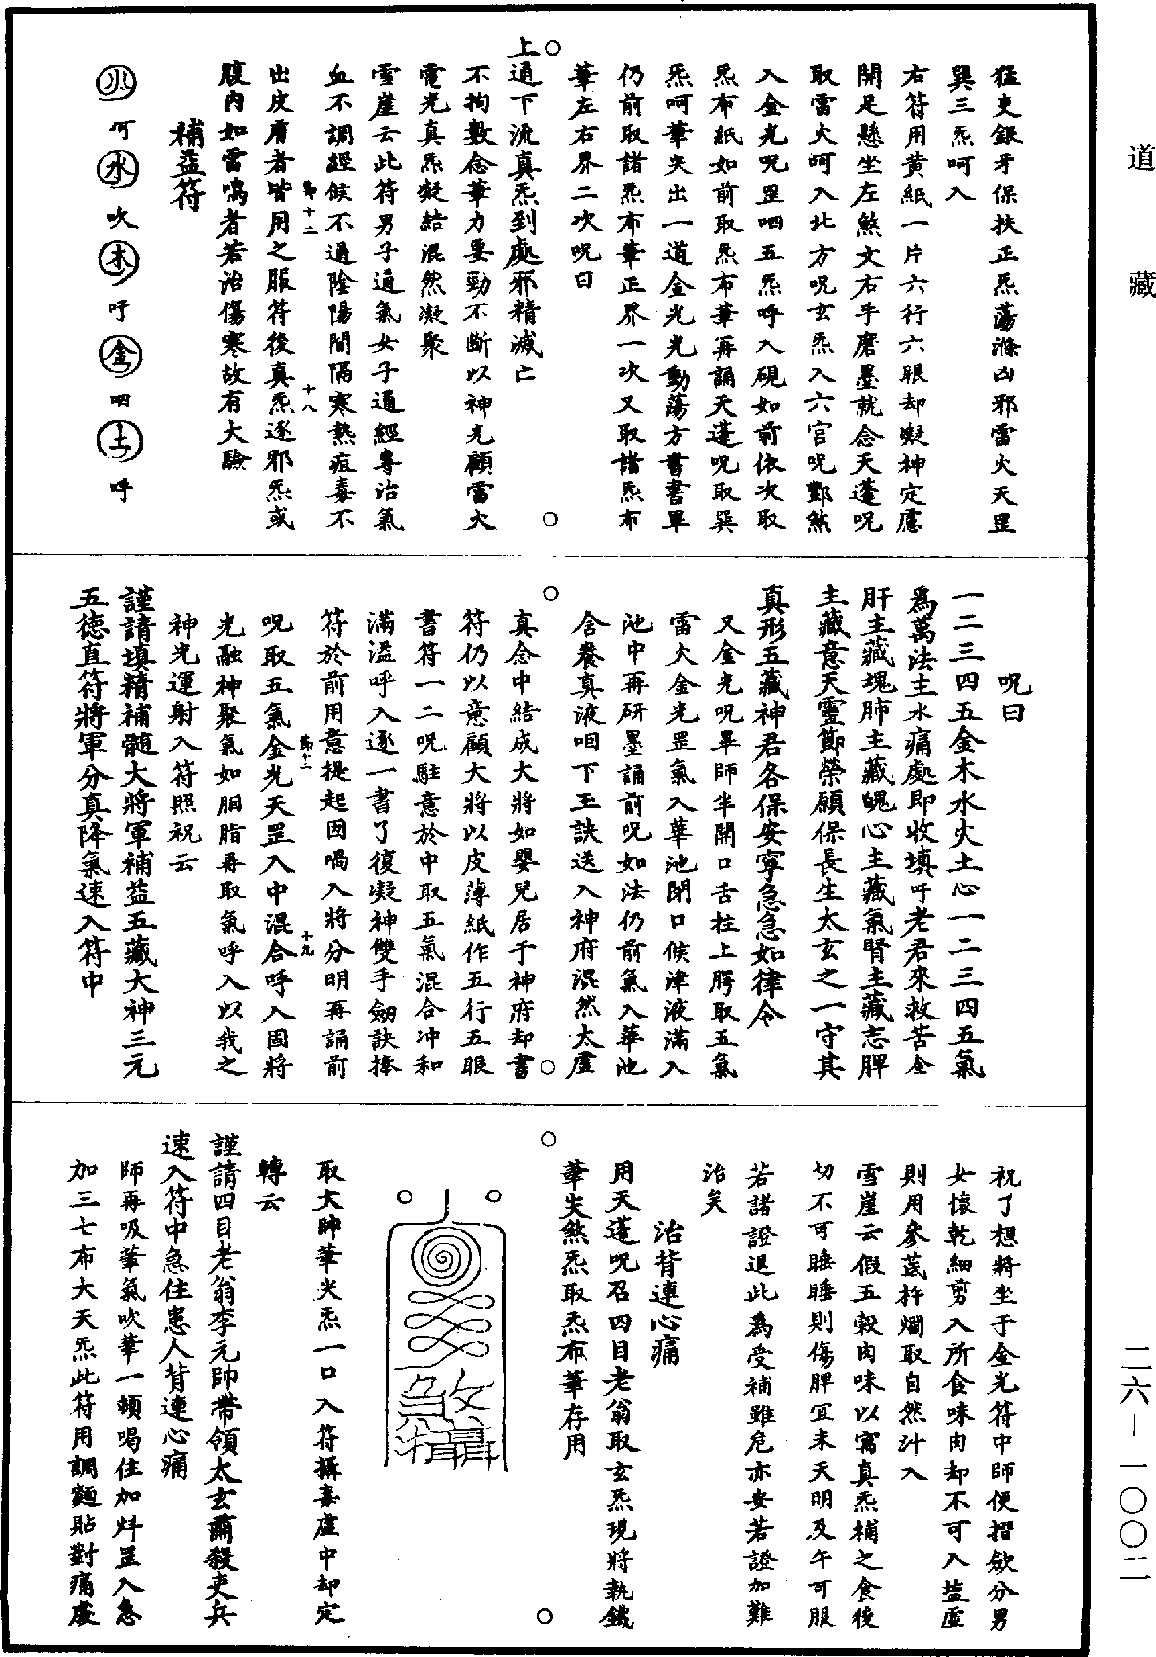 道藏
猛吏銀牙保扶正炁蕩滌凶邪雷火天罡
巽三炁呵入
右符用黃紙一片六行六眼却凝神定慮
開足懸坐左煞文右手磨墨就念天蓬呪
取雷火呵入北方呪玄炁入六宮呪酆煞
入金光呪罡呬五炁呼入硯如前依次取
炁布紙如前取炁布筆再誦天蓬呪取巽
炁呵筆尖出一道金光光動蕩方書書畢
仍前取諸炁布筆正界一次又取諸炁布
筆左右界二次呪曰
上通下流真炁到處邪精滅亡
不拘數念筆力要勁不斷以神光顧雷火
電光真炁凝結混然凝聚
雪崖云此符男子通氣女子通經專治氣
血不調經候不過陰陽間隔寒熱疽毒不
第十二 十八
出皮膚者皆用之服符後真炁逐邪炁或
腹內如雷鳴者若治傷寒故有大驗
補益符
火呵水吹木吁金呬土呼
呪曰
一二三四五金木水火土心一二三四五氣
為萬法主水痛處即收填吁老君來救苦金
肝主藏魂肺主藏魄心主藏氣腎主藏志脾
主藏意天靈節榮願保長生太玄之一守其
真形五藏神君各保安寧急急如律令
又金光呪畢師半開口舌柱上腭取五氣
雷火金光罡氣入華池閉口候津液滿入
池中再研墨誦前呪如法仍前氣入華池
含養真液咽下玉訣送入神府混然太虛
真念中結成大將如嬰兒居于神府却書
符仍以意顧大將以皮薄紙作五行五眼
書符一二呪駐意於中取五氣混合冲和
滿溢呼入逐一書了復凝神雙手劒訣捧
符於前用意提起因喝入將分明再誦前
第十二 十九
呪取五氣金光天罡入中混合呼入固將
光融神聚氣如胭脂再取氣呼入以我之
神光運射入符照祝云
謹請填精補髓大將軍補益五藏大神三元
五德直符將軍分真降氣速入符中
祝了想將坐于金光符中師便摺歛分男
女懷乾細剪入所食味肉却不可入鹽虛
則用參茋杵爛取自然汁入
雪崖云假五穀肉味以寓真炁補之食後
切不可睡睡則傷脾宜未天明及午可服
若諸證退此為受補雖危亦安若證加難
治矣
治背連心痛
用天蓬呪召四目老翁取玄炁現將執鐵
筆尖煞炁取炁布筆存用
取大帥筆尖炁一口入符攝毒虛中却定
轉云
謹請四目老翁李元帥帶領太玄薾殺吏兵
速入符中急住患人背連心痛
師再吸筆氣吹筆一頓喝住加炓罡入急
加三七布大天炁此符用調麵貼對痛處
二六—一〇〇二